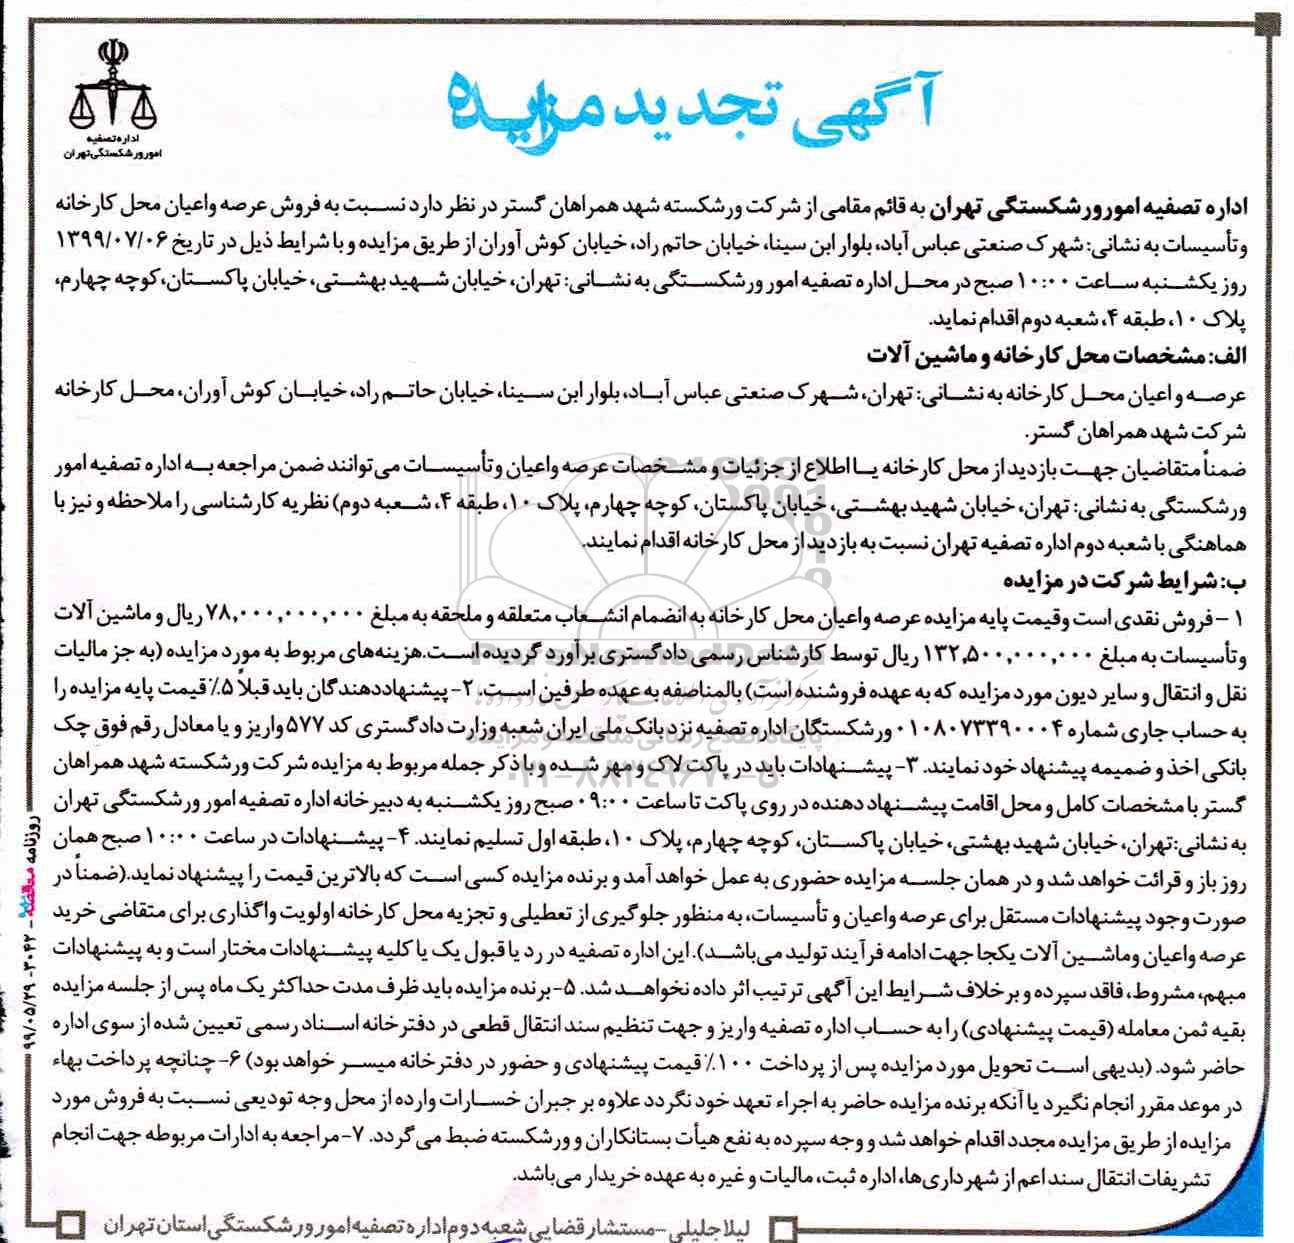 اداره تصفیه
امور ورشکستگی تهران
آگهی تجدید مزایده
اداره تصفیه امور ورشکستگی تهران به قائم مقامی از شرکت ورشکسته شهد همراهان گستر در نظر دارد نسبت به فروش عرصه واعیان محل کارخانه
وتأسیسات به نشانی: شهرک صنعتی عباس آباد، بلوار ابن سینا، خیابان حاتم راد، خیابان کوش آوران از طریق مزایده و با شرایط ذیل در تاریخ ۱۳۹۹/۰۷/۰۶
روز یکشنبه ساعت ۱۰:۰۰ صبح در محل اداره تصفیه امور ورشکستگی به نشانی: تهران، خیابان شهید بهشتی، خیابان پاکستان، کوچه چهارم،
پلاک ۱۰، طبقه ۴، شعبه دوم اقدام نماید.
الف: مشخصات محل کارخانه و ماشین آلات
عرصه و اعیان محل کارخانه به نشانی: تهران، شهرک صنعتی عباس آباد، بلوار ابن سینا، خیابان حاتم راد، خیابان کوش آوران، محل کارخانه
شرکت شهد همراهان گستر.
ضمناً متقاضیان جهت بازدید از محل کارخانه یا اطلاع از جزئیات و مشخصات عرصه واعیان وتأسیسات می‌توانند ضمن مراجعه به اداره تصفیه امور
ورشکستگی به نشانی: تهران، خیابان شهید بهشتی، خیابان پاکستان، کوچه چهارم، پلاک ۱۰، طبقه ۴، شعبه دوم) نظریه کارشناسی را ملاحظه و نیز با
هماهنگی با شعبه دوم اداره تصفیه تهران نسبت به بازدید از محل کارخانه اقدام نمایند.
ب: شرایط شرکت در مزایده
۱ – فروش نقدی است وقیمت پایه مزایده عرصه واعیان محل کارخانه به انضمام انشعاب متعلقه و ملحقه به مبلغ ۷۸,۰۰۰,۰۰۰,۰۰۰ ریال و ماشین آلات
وتأسیسات به مبلغ ۱۳۲,۵۰۰,۰۰۰,۰۰۰ ریال توسط کارشناس رسمی دادگستری برآورد گردیده است.هزینه‌های مربوط به مورد مزایده (به جز مالیات
نقل و انتقال و سایر دیون مورد مزایده که به عهده فروشنده است) بالمناصفه به عهده طرفین است. ۲- پیشنهاددهندگان باید قبلاً ۵٪ قیمت پایه مزایده را
به حساب جاری شماره ۰۱۰۸۰۷۳۳۹۰۰۰۴ ورشکستگان اداره تصفیه نزد بانک ملی ایران شعبه وزارت دادگستری کد ۵۷۷ واریز و یا معادل رقم فوق چک
بانکی اخذ و ضمیمه پیشنهاد خود نمایند. ۳- پیشنهادات باید در پاکت لاک و مهر شده و با ذکر جمله مربوط به مزایده شرکت ورشکسته شهد همراهان
گستر با مشخصات کامل و محل اقامت پیشنهاد دهنده در روی پاکت تا ساعت ۰۹:۰۰ صبح روز یکشنبه به دبیرخانه اداره تصفیه امور ورشکستگی تهران
به نشانی:تهران، خیابان شهید بهشتی، خیابان پاکستان، کوچه چهارم، پلاک ۱۰، طبقه اول تسلیم نمایند. ۴- پیشنهادات در ساعت ۱۰:۰۰ صبح همان
روز باز و قرائت خواهد شد و در همان جلسه مزایده حضوری به عمل خواهد آمد و برنده مزایده کسی است که بالاترین قیمت را پیشنهاد نماید.(ضمناً در
صورت وجود پیشنهادات مستقل برای عرصه واعیان و تأسیسات، به منظور جلوگیری از تعطیلی و تجزیه محل کارخانه اولویت واگذاری برای متقاضی خرید
عرصه واعیان وماشین آلات یکجا جهت ادامه فرآیند تولید می‌باشد). این اداره تصفیه در رد یا قبول یک یا کلیه پیشنهادات مختار است و به پیشنهادات
مبهم، مشروط، فاقد سپرده و برخلاف شرایط این آگهی ترتیب اثر داده نخواهد شد. ۵- برنده مزایده باید ظرف مدت حداکثر یک ماه پس از جلسه مزایده
بقیه ثمن معامله (قیمت پیشنهادی) را به حساب اداره تصفیه واریز و جهت تنظیم سند انتقال قطعی در دفترخانه اسناد رسمی تعیین شده از سوی اداره
حاضر شود. (بدیهی است تحویل مورد مزایده پس از پرداخت ۱۰۰٪ قیمت پیشنهادی و حضور در دفترخانه میسر خواهد بود) ۶- چنانچه پرداخت بهاء
در موعد مقرر انجام نگیرد یا آنکه برنده مزایده حاضر به اجراء تعهد خود نگردد علاوه بر جبران خسارات وارده از محل وجه تودیعی نسبت به فروش مورد
مزایده از طریق مزایده مجدد اقدام خواهد شد و وجه سپرده به نفع هیأت بستانکاران و ورشکسته ضبط می‌گردد. ۷- مراجعه به ادارات مربوطه جهت انجام
تشریفات انتقال سند اعم از شهرداری‌ها، اداره ثبت، مالیات و غیره به عهده خریدار می‌باشد.
لیلا جلیلی – مستشار قضایی شعبه دوم اداره تصفیه امور ورشکستگی استان تهران
روزنامه مناقصه – ۳۰۴۲ – ۹۹/۰۵/۲۹
ParsNamadData
پایگاه اطلاع رسانی مناقصه و مزایده
۰۲۱-۸۸۳۴۹۶۷۰-۵